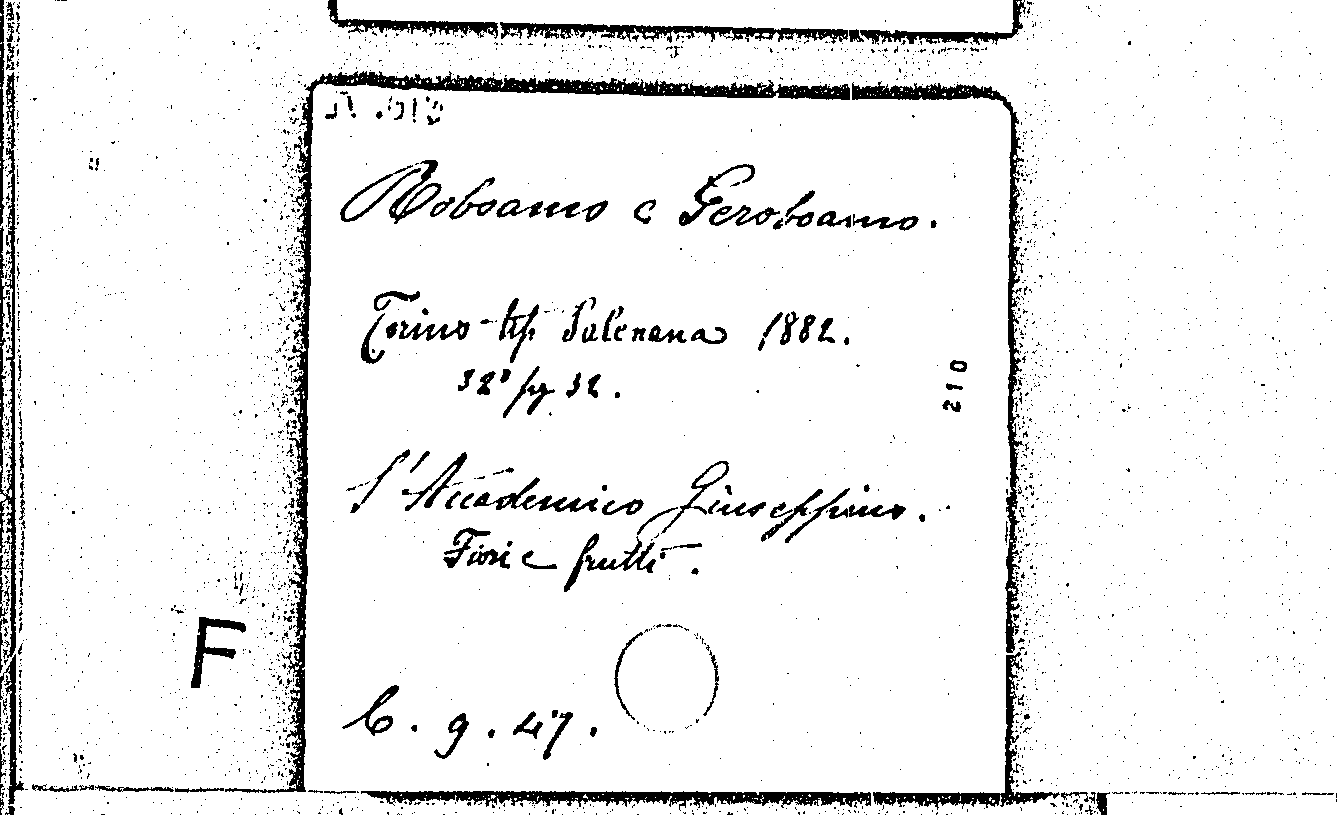 Roboamo e Geroboamo.
Torino tip Salesiana 1882.
32º pg 32.
210
L'Accademico Giuseppino.
Fiori e frutti.
F
C. 9. 47.